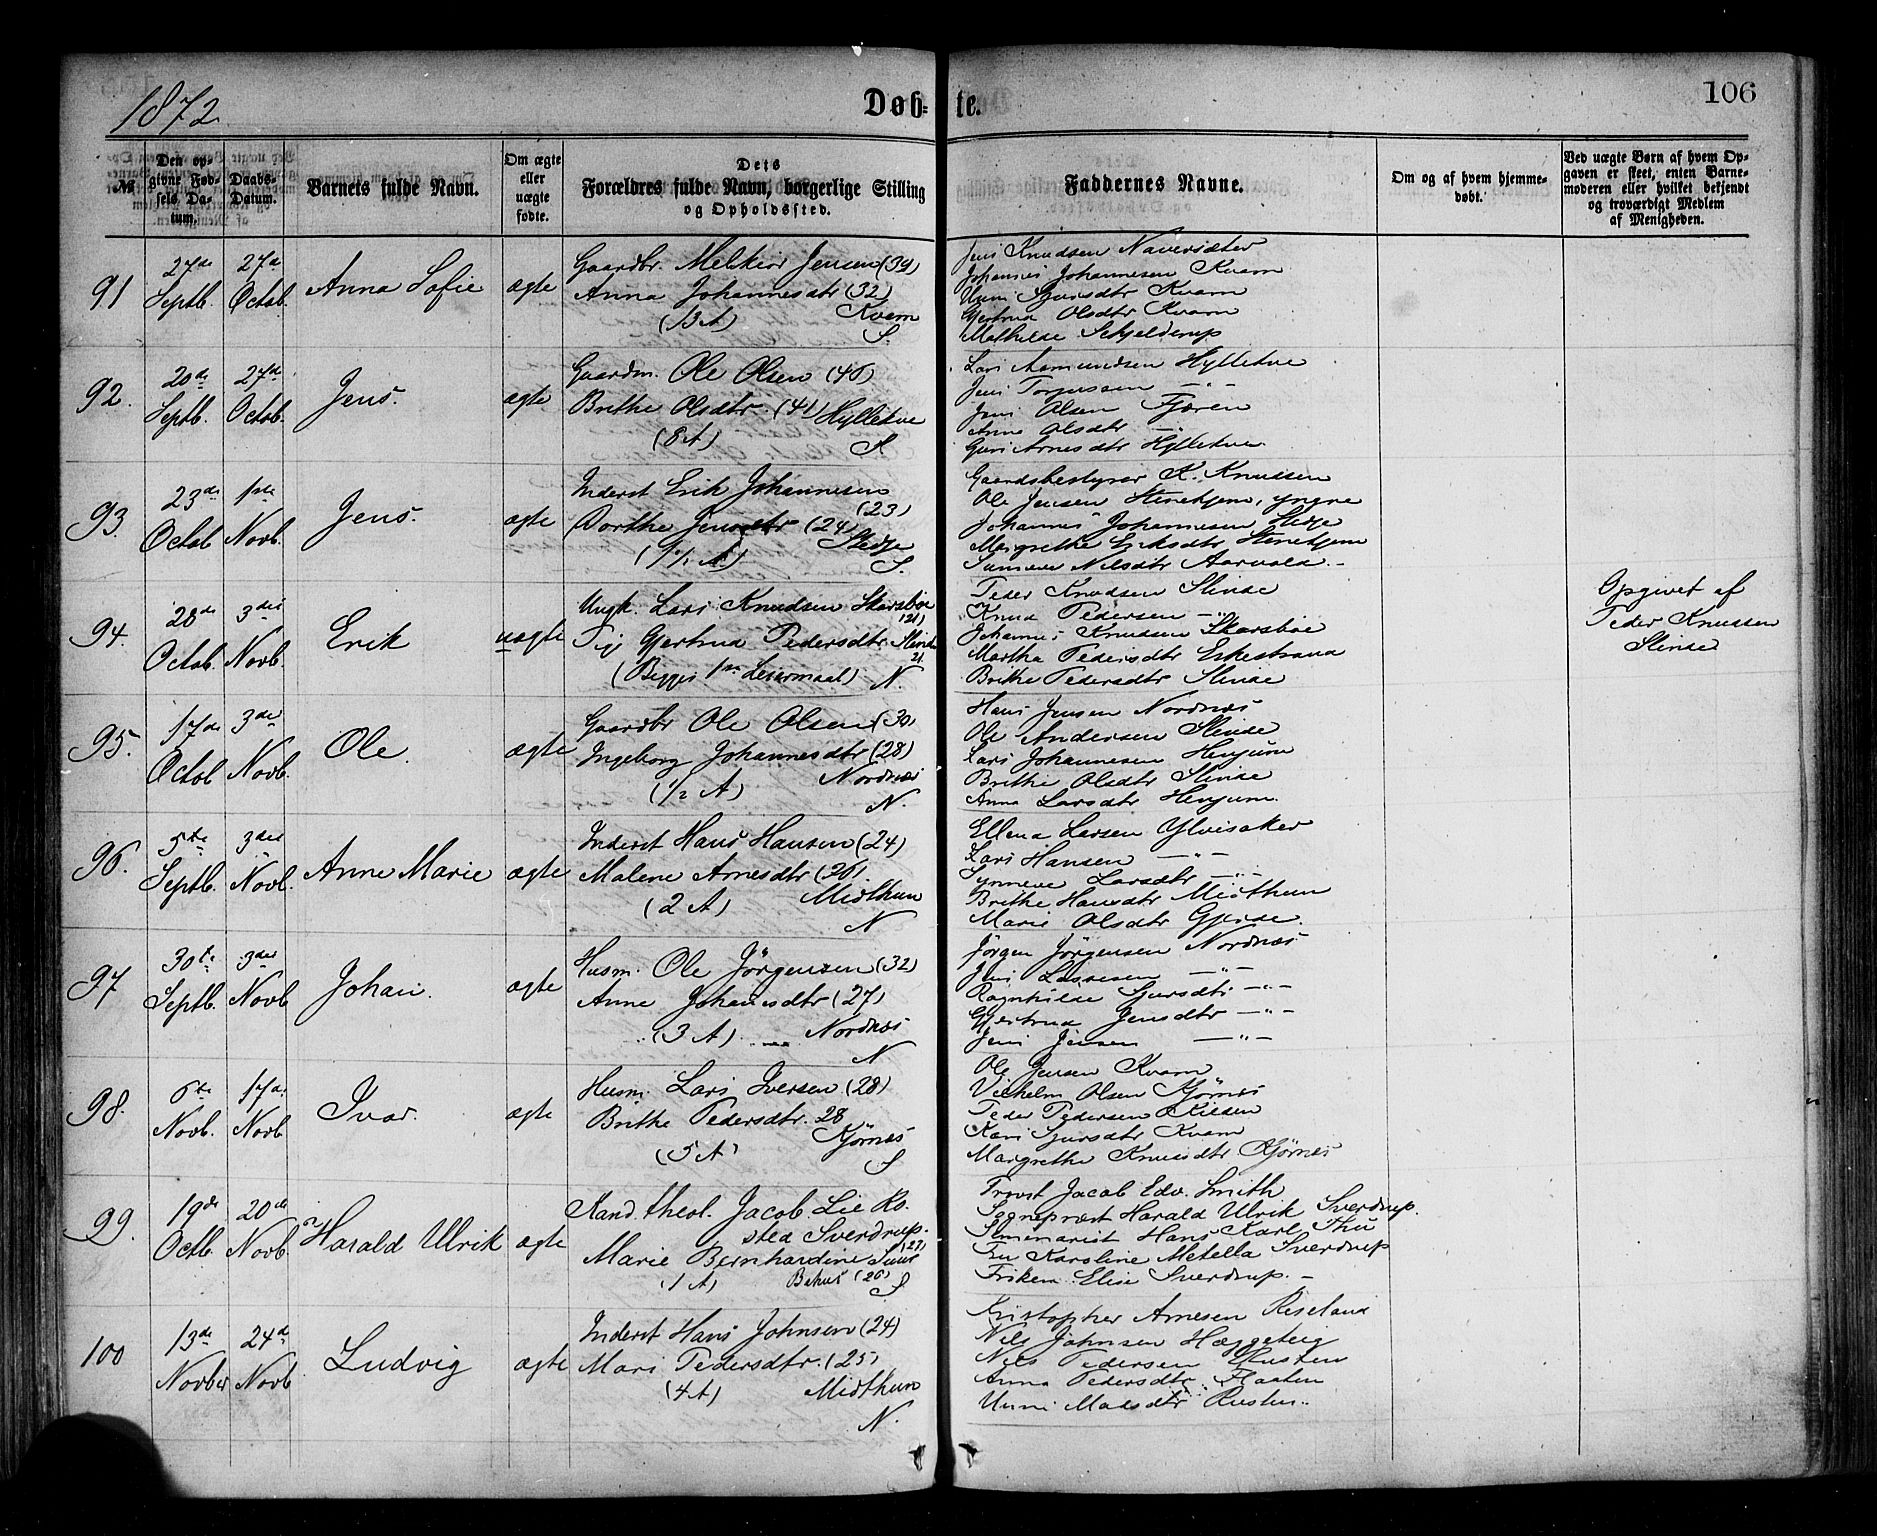 1872.
Døb- te.
106
№
Den opgivne Fødsels Datum.
Daabs-Datum.
Barnets fulde Navn.
Om ægte eller uægte fødte.
Dets Forældres fulde Navn, borgerlige Stilling og Opholdssted.
Faddernes Navne.
Om og af hvem hjemmedøbt.
Ved uægte Børn af hvem Opgaven er skeet, enten Barnemoderen eller hvilket bekjendt og troværdigt Medlem af Menigheden.
91
27de Septb.
27d Octob.
Anna Sofie
ægte
Gaardbr. Melkior Jensen (39)
Anna Johannesdtr (32)
Kvam
(13 A)
S.
Jens Knudsen Naversæter
Johannes Johannesen Kvam
Unni Sjursdtr Kvam
Gjertrud Olsdtr Kvam
Mathilde Schjelderup
92.
20de Septb.
27d Octob.
Jens.
ægte
Gaardm. Ole Olsen (46)
Brithe Olsdtr. (41) Hylletve
(8 A)
S
Lars Aamundsen Hylletve
Jens Torgersen —"—
Jens Olsen Fjæren
Anna Olsdtr —"—
Guri Arnesdtr Hylletve
93.
23de Octob
1ste Novb.
Jens.
ægte
Inderst Erik Johannesen (23)
Dorthe Jensdtr (24)
Stedje
S.
Gaardsbestyrer K. Knudsen
Ole Jensen Stenehjem, yngre
Johannes Johannesen Stedje
Margrethe Eriksdtr Stenehjem
Sunneva Nilsdtr Aarvold
94.
28de Octob
3die Novb.
Erik
uægte
Ungk. Lars Knudsen Skarsbøe (21)
Pige Gjertrud Pedersdtr Slinde 21.
(Begges 1ste Leiermaal) N.
Peder Knudsen Slinde
Knud Pedersen —"—
Johannes Knudsen Skarsbøe
Martha Pedersdtr Eikestrand
Brithe Pedersdtr Slinde
Opgivet af
Peder Knudsen
Slinde
95.
17de Octob
3die Novb.
Ole.
ægte
Gaardbr Ole Olsen (30)
Ingeborg Johannesdtr (28)
(1/2 A)
Nordnæs
N.
Hans Jensen Nordnæs
Ole Andersen Slinde
Lars Johannesen Henjum
Brithe Olsdtr Slinde
Anna Larsdtr Henjum.
96.
5te Septb.
3die Novb.
Anne Marie
ægte
Inderst Hans Hansen (24)
Malene Arnesdtr (26)
(2 A)
Midthun
N
Ellend Larsen Ylvisaker
Lars Hansen —"—
Synneve Larsdtr —"—
Brithe Hansdtr Midthun
Marie Olsdtr Gjerde.
97
30te Septb.
3die Novb
Johan.
ægte
Husm. Ole Jörgensen (32)
Anne Johansdtr (27)
(3 A)
Nordnæs
N
Jörgen Jörgensen Nordnæs
Jens Lassesen —"—
Ragnhilde Sjursdtr —"—
Gjertrud Jensdtr —"—
Jens Jensen —"—
98.
6te Novb.
17de Novb
Ivar.
ægte
Husm. Lars Iversen (28)
Brithe Pedersdtr. 28
Kjörnæs
(5 A)
S
Ole Jensen Kvam
Vilhelm Olsen Kjörnæs
Peder Pedersen
Kari Sjursdtr Kvam
Margrethe Knudsdtr Kjörnæs
99.
19de Octb.
20de Novb
Harald Ulrik
ægte
Kand. theol. Jacob Lie Ro-
sted Sverdrup. (27)
Marie Bernhardine
(1 A)
(26)
S
Provst Jacob Edv. Smith
Sognepræst Harald Ulrik Sverdrup.
Seminarist Hans Karl Thu
Fru Karoline Metella Sverdrup
Frøken Elise Sverdrup. —
100
13de Novber
24d Novb
Ludvig
ægte
Inderst Hans Johnsen (24)
Mari Pedersdtr. (25)
(4 A)
Midthun
N.
Kristopher Arnesen Reseland
Nils Johnsen Hæggeberg
Nils Pedersen Rusten
Anna Pedersdtr. Flaaten
Unni Madsdtr Rusten.